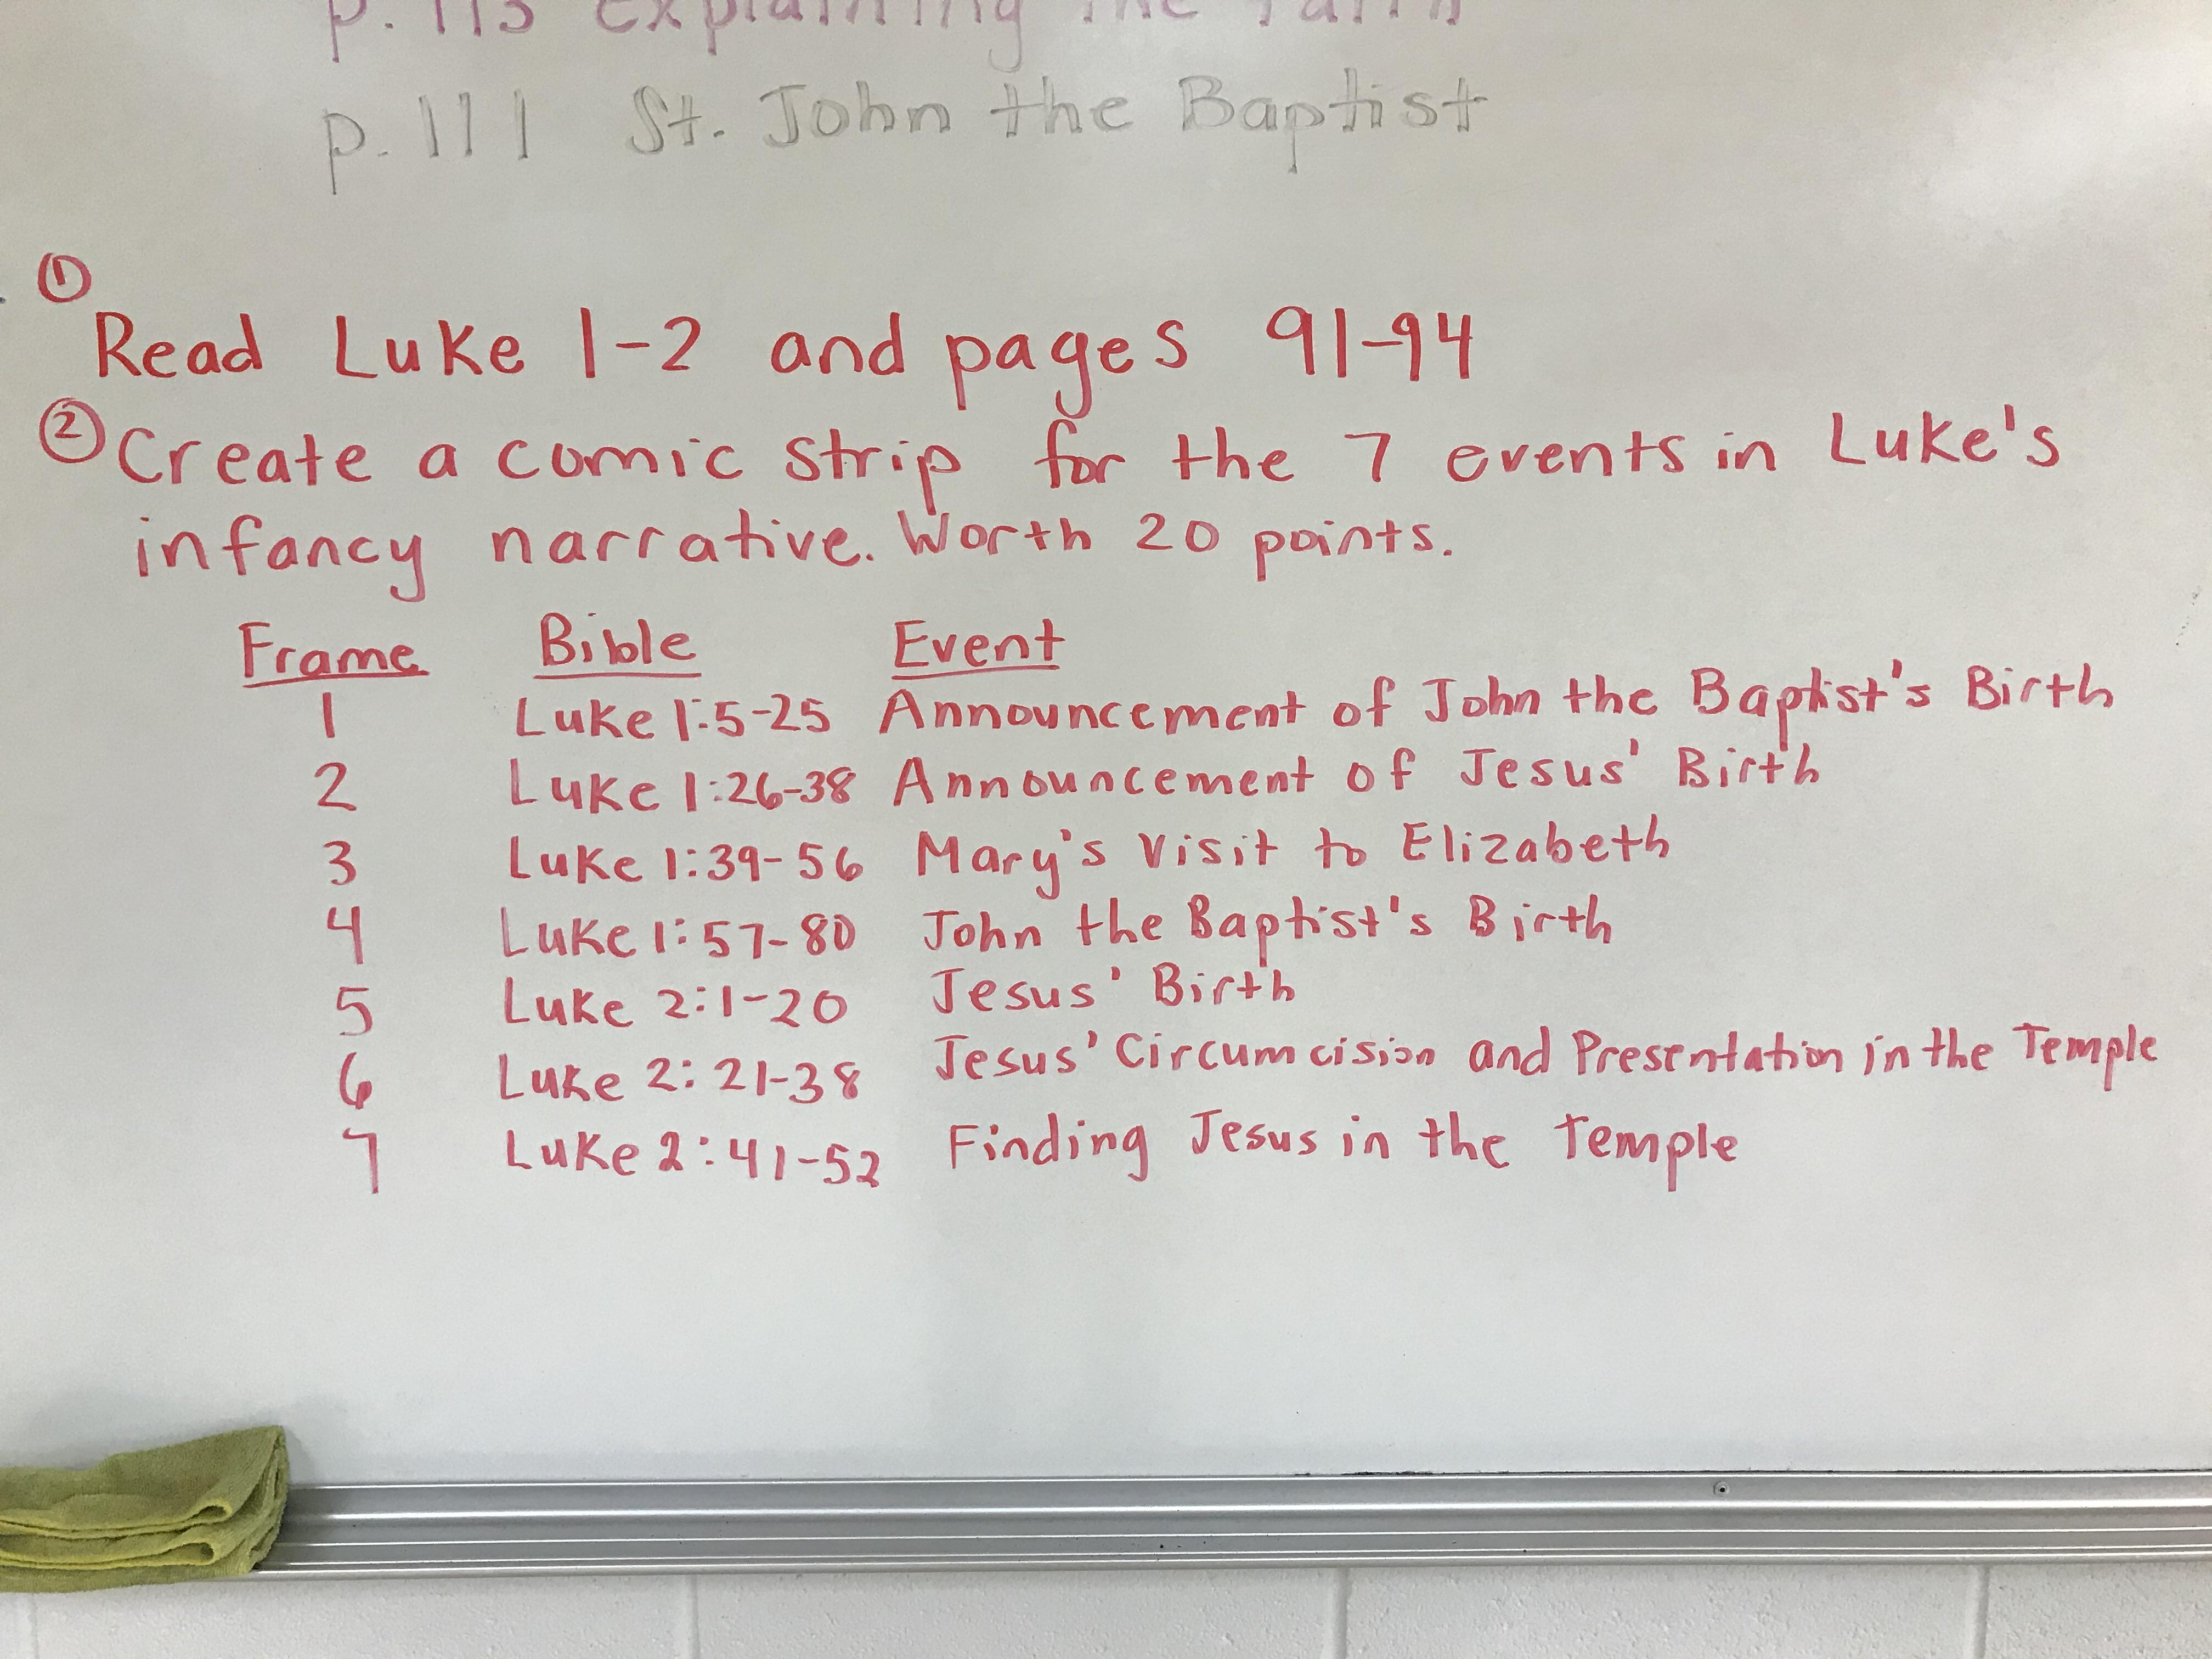 p. 113 Explaining the Faith
p. 111 St. John the Baptist
①
Read Luke 1-2 and pages 91-94
② Create a comic strip for the 7 events in Luke's
infancy narrative. Worth 20 points.
Frame Bible Event
1 Luke 1:5-25 Announcement of John the Baptist's Birth
2 Luke 1:26-38 Announcement of Jesus' Birth
3 Luke 1:39-56 Mary's Visit to Elizabeth
4 Luke 1:57-80 John the Baptist's Birth
5 Luke 2:1-20 Jesus' Birth
6 Luke 2:21-38 Jesus' Circumcision and Presentation in the Temple
7 Luke 2:41-52 Finding Jesus in the Temple